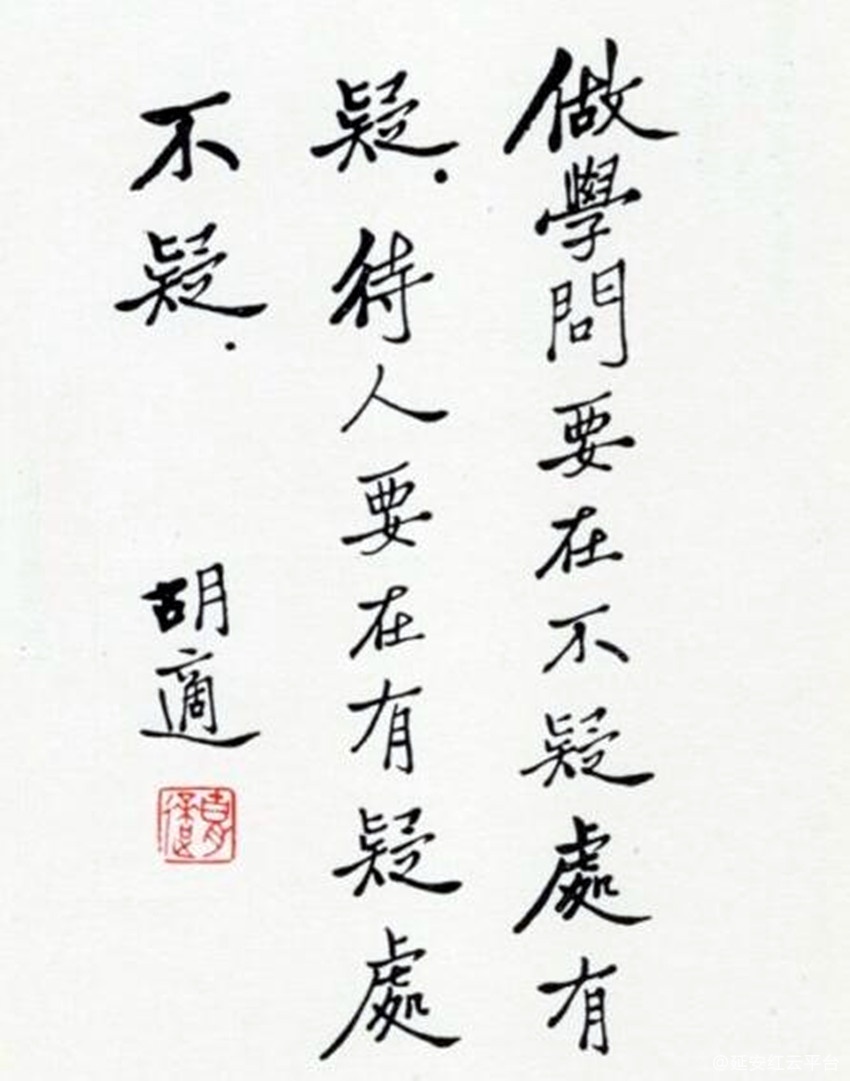 做學問要在不疑處有
疑.待人要在有疑處
不疑.
胡適
@延安红云平台